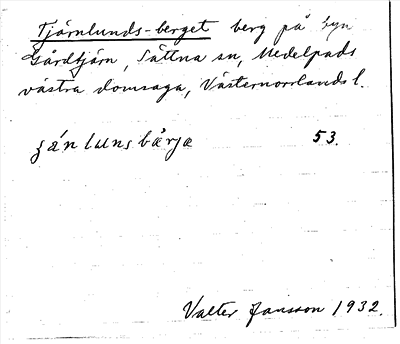 Tjärnlunds-berget berg på byn
Gårdtjärn, Sättna sn, Medelpads
västra domsaga, Västernorrlands l.
ʒánlunsbærjæ 53.
Valter Jansson 1932.